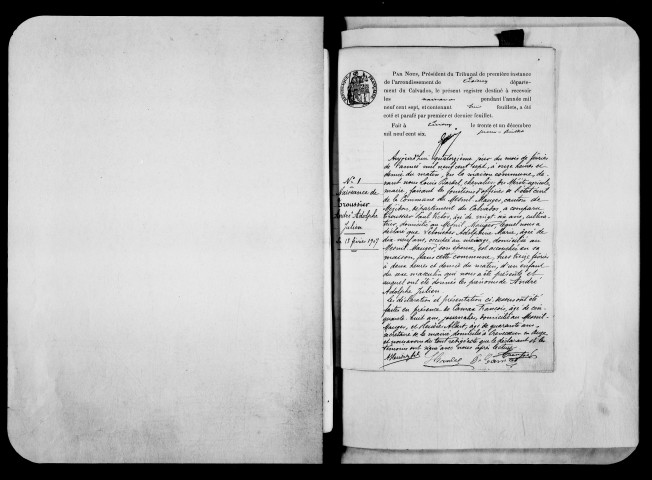 Par Nous, Président du Tribunal de première instance
de l'arrondissement de Lisieux départe-
ment du Calvados, le présent registre destiné à recevoir
les naissances pendant l'année mil
neuf cent sept, et contenant feuillets, a été
coté et parafé par premier et dernier feuillet.
Fait à Lisieux le trente et un décembre
mil neuf cent six.
N° 1
Naissance de
Troussier
André Adolphe
Julien
Le 13 février 1907
Aujourd'hui quatorzième jour du mois de février
de l'année mil neuf cent sept, à onze heures et
demie du matin, en la maison commune, de-
vant nous Louis chevalier du Mérite agricole,
maire, faisant les fonctions d'officier de l'état civil
de la Commune du Mesnil Mauger, canton de
Mézidon, département du Calvados, a comparu
Troussier Paul Victor, âgé de vingt-six ans, cultiva-
teur, domicilié au Mesnil Mauger, lequel nous a
déclaré que Adolphine Marie, âgée de
dix neuf ans, occupée au ménage, domiciliée au
Mesnil Mauger, son épouse, est accouchée en sa
maison, dans cette commune, hier treize février
à deux heures et demie du matin, d'un enfant
du sexe masculin qui nous a été présenté et
auquel ont été donnés les prénoms de André
Adolphe Julien.
Les déclaration et présentation ci-dessus ont été
faites en présence de François, âgé de cin-
quante huit ans, journalier, domicilié au Mesnil-
Mauger, et Albert, âgé de quarante ans,
secrétaire de la mairie domicilié à en Auge
et nous avons du tout rédigé acte que le déclarant et les
témoins ont signé avec nous après lecture.
Troussier